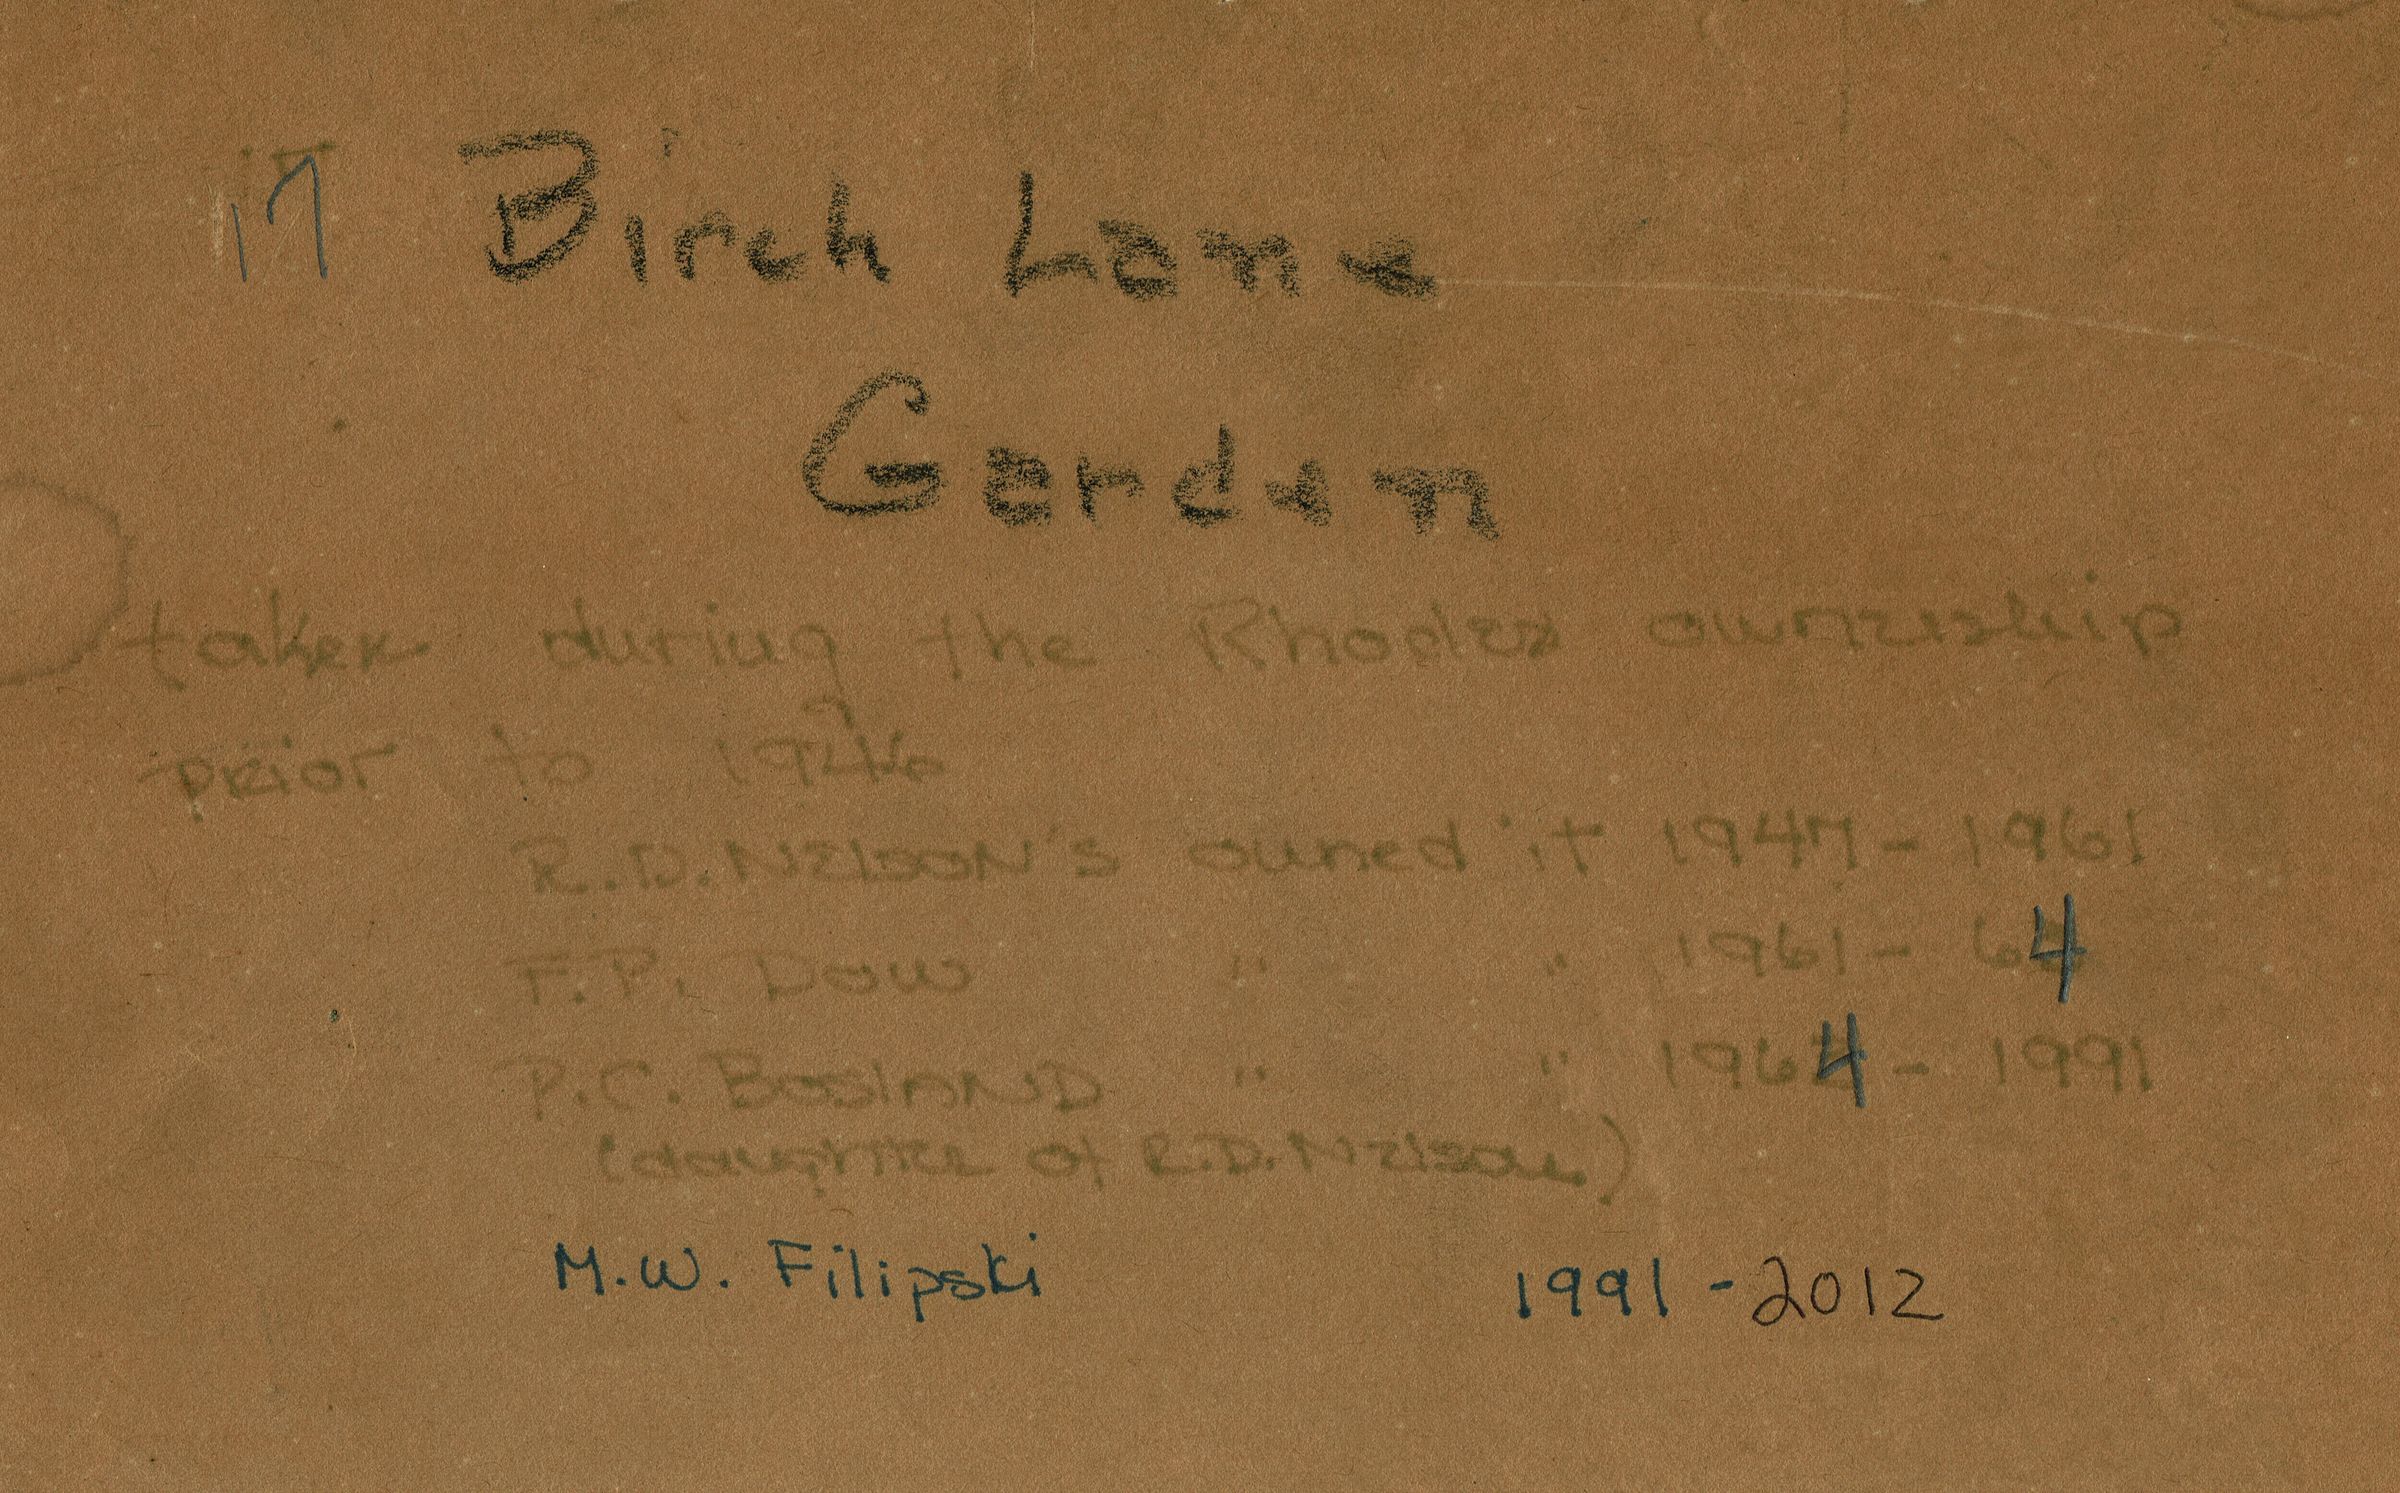 17 Birch Lane
Garden
taken during the Rhodes ownership
prior to 1946
R.D. Nelson's owned it 1947 - 1961
F.P. Dow " " 1961 - 64
P.C. BoslAND " " 1964 - 1991
(daughter of R.D. Nelson)
M.W. Filipski 1991 - 2012